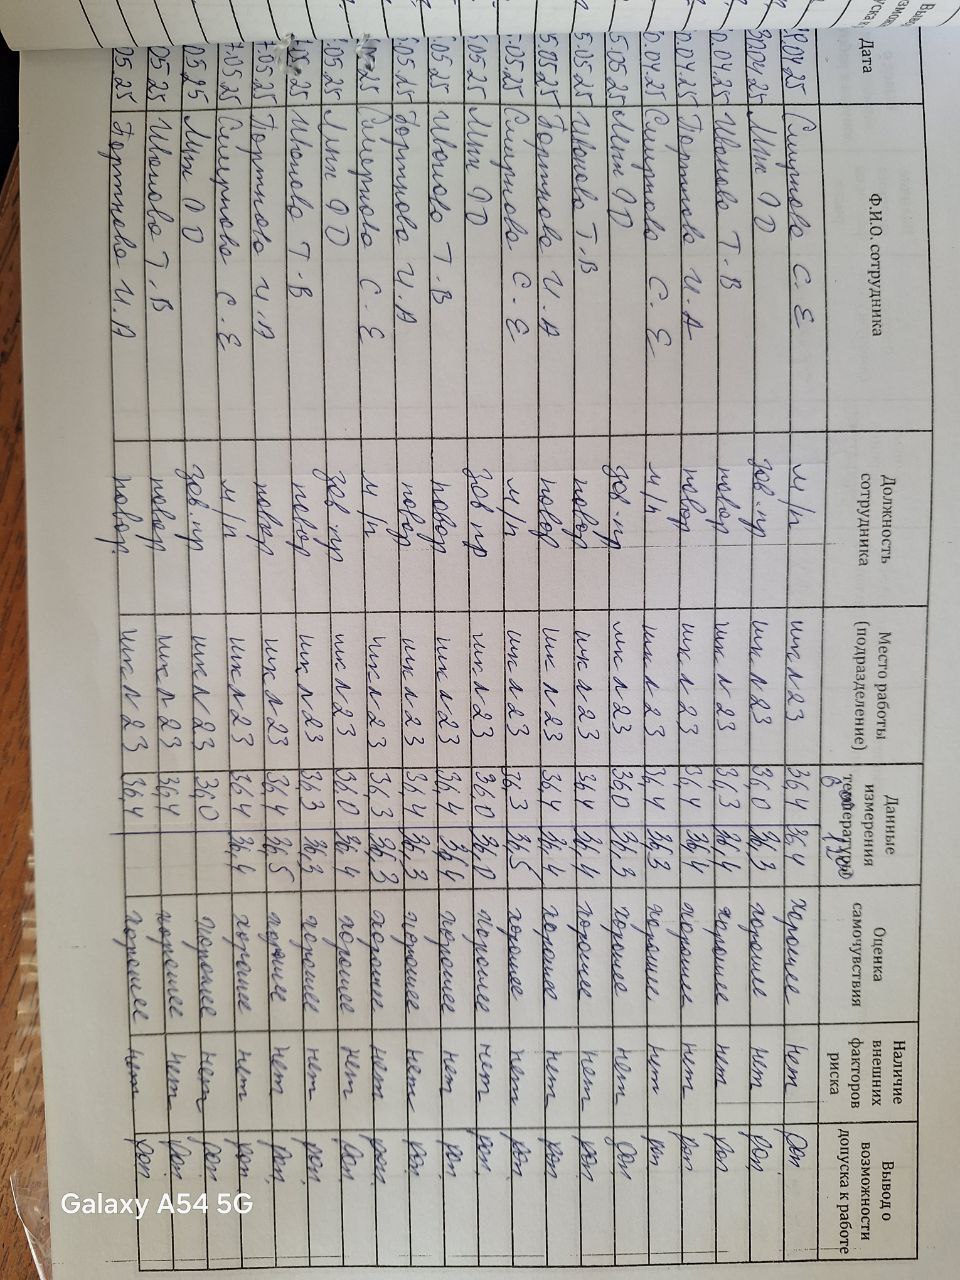 Дата Ф.И.О. сотрудника Должность сотрудника Место работы (подразделение) Данные измерения температуры Оценка самочувствия Наличие внешних факторов риска Вывод о возможности допуска к работе
04.25 Смирнова С.Е м/п шк N 23 36,4 36,4 хорошее нет доп.
30.04.25 Мин зав.пр шк N 23 36,0 36,3 хорошее нет доп
0.04.25 Иванова Т.В повар шк N 23 36,3 36,4 хорошее нет доп
0.04.25 Портнова И.А повар шк N 23 36,4 36,4 хорошее нет доп
0.04.25 Смирнова С.Е м/п шк N 23 36,4 36,3 хорошее нет доп
5.05.25 Мин зав.пр шк N 23 36,0 36,3 хорошее нет доп
5.05.25 Иванова Т.В повар шк N 23 36,4 36,4 хорошее нет доп.
5.05.25 Портнова И.А повар шк N 23 36,4 36,4 хорошее нет доп
.05.25 Смирнова С.Е м/п шк N 23 36,3 36,5 хорошее нет доп
05 25 Мин зав пр шк N 23 36,0 36,0 хорошее нет доп.
.05.25 Иванова Т.В повар шк N 23 36,4 36,4 хорошее нет доп.
.05.25 Портнова И.А повар шк N 23 36,4 36,3 хорошее нет доп.
25 Смирнова С.Е м/п шк N 23 36,3 36,3 хорошее нет доп.
.05.25 Мин зав пр шк N 23 36,0 36,4 хорошее нет доп.
25 Иванова Т.В повар шк N 23 36,3 36,3 хорошее нет доп.
7.05.25 Портнова И.А повар шк N 23 36,4 36,5 хорошее нет доп.
7.05.25 Смирнова С.Е м/п шк N 23 36,4 36,4 хорошее нет доп.
05.25 Мин зав пр шк N 23 36,0 хорошее нет доп.
05.25 Иванова Т.В повар шк N 23 36,4 хорошее нет доп.
05.25 Портнова И.А повар. шк N 23 36,4 хорошее нет доп.
Galaxy A54 5G